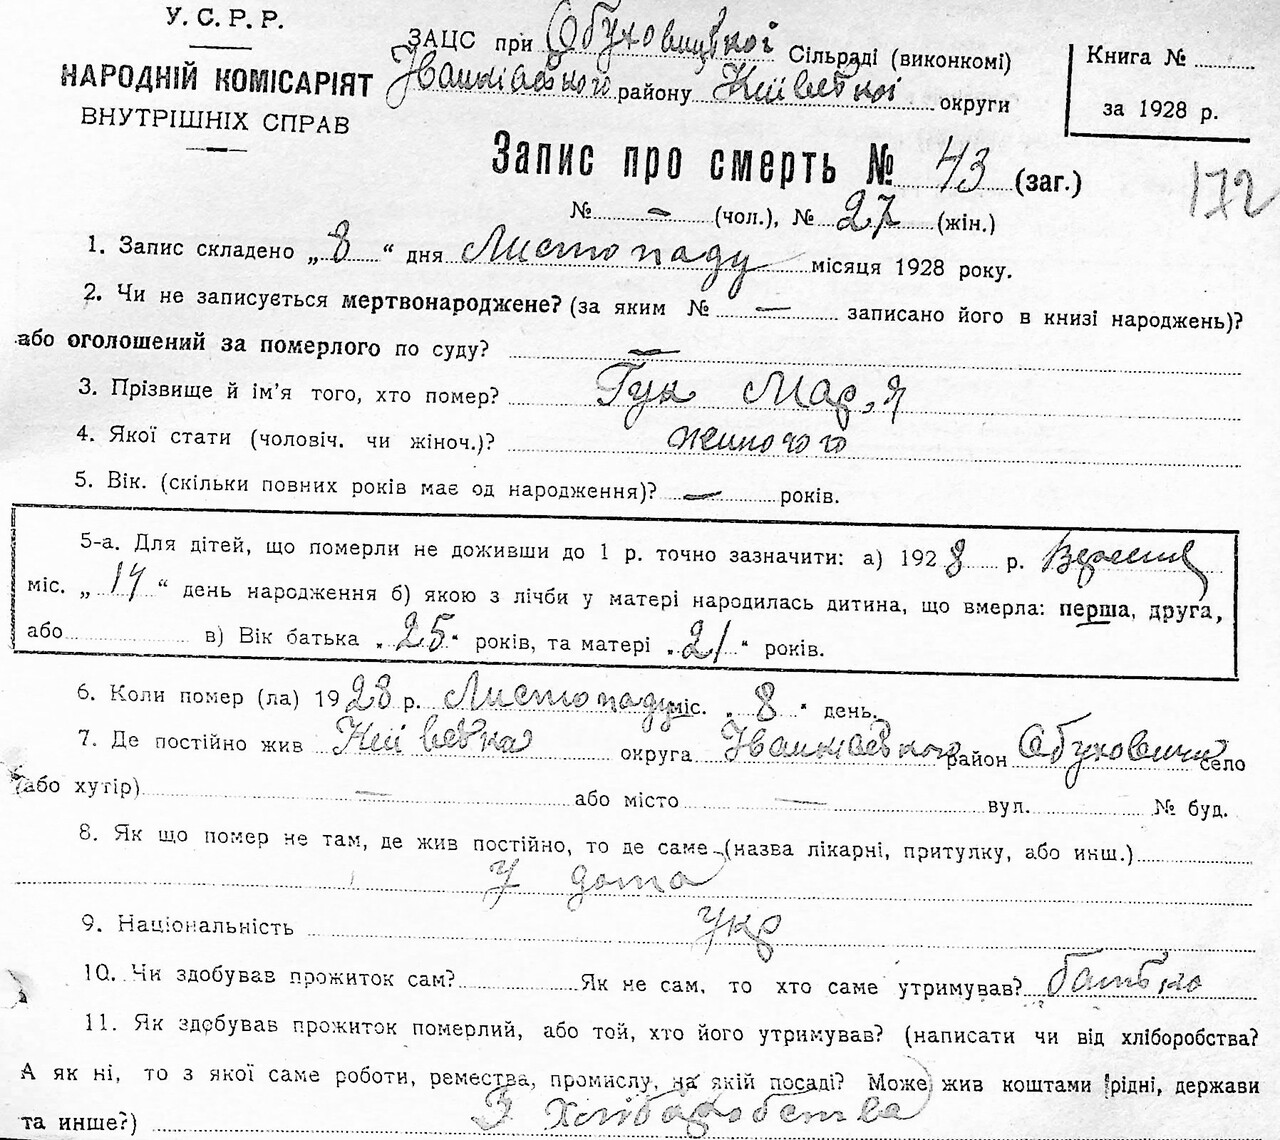 У. С. Р. Р.
НАРОДНІЙ КОМІСАРІЯТ
ВНУТРІШНІХ СПРАВ
ЗАЦС при Обуховицької Сільраді (виконкомі)
Іванківського району Київської округи
Книга №
за 1928 р.
Запис про смерть № 43 (заг.)
172
№ — (чол.), № 27 (жін.)
1. Запис складено „8“ дня Листопаду місяця 1928 року.
2. Чи не записується мертвонароджене? (за яким № — записано його в книзі народжень)?
або оголошений за померлого по суду? —
3. Прізвище й ім’я того, хто помер? Гук Мар,я
4. Якої стати (чоловіч. чи жіноч.)? жиночого
5. Вік. (скільки повних років має од народження)? — років.
5-а. Для дітей, що померли не доживши до 1 р. точно зазначити: а) 1928 р. Вересня
міс. „14“ день народження б) якою з лічби у матері народилась дитина, що вмерла: перша, друга,
або в) Вік батька „25“ років, та матері „21“ років.
6. Коли помер (ла) 1928 р. Листопаду міс. „8“ день.
7. Де постійно жив Київська округа Іванківського район Обуховичи село
(або хутір) — або місто — вул. № буд.
8. Як що помер не там, де жив постійно, то де саме (назва лікарні, притулку, або инш.)
У дома
9. Національність укр
10. Чи здобував прожиток сам? Як не сам, то хто саме утримував? батько
11. Як здобував прожиток померлий, або той, хто його утримував? (написати чи від хліборобства?
А як ні, то з якої саме роботи, ремества, промислу, на якій посаді? Може жив коштами рідні, держави
та инше?) З хліборобства